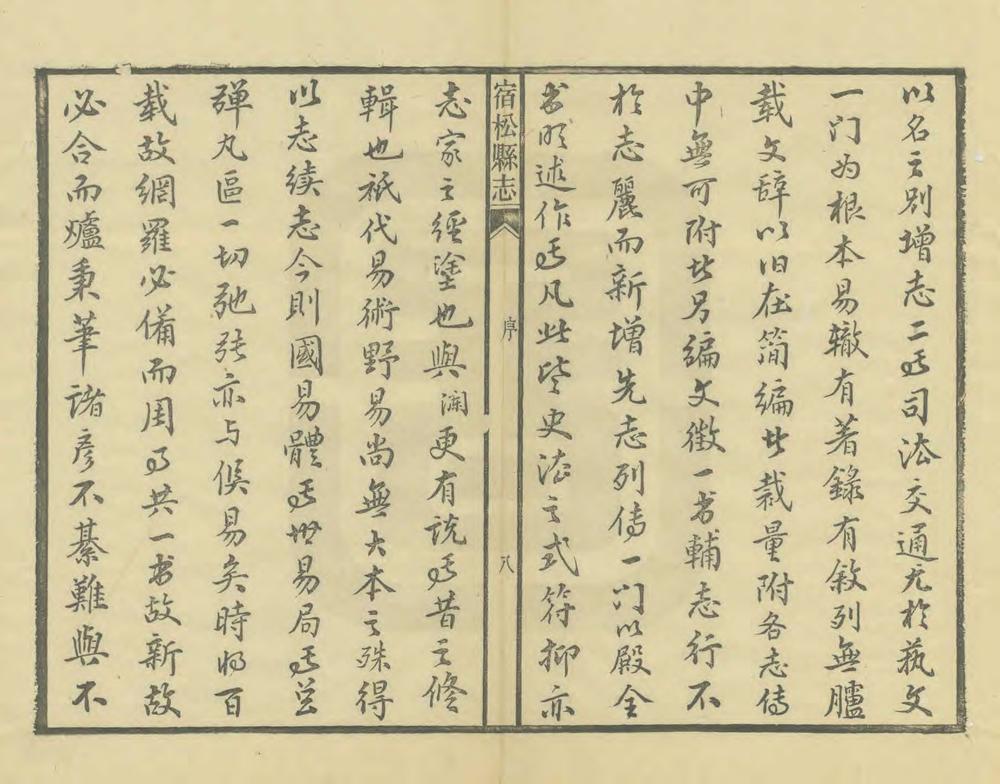 以名之別增志二曰司法交通尤於藝文
一门为根本易轍有著錄有敘列無臚
载文辞以旧在简编此裁量附各志传
中無可附者另编文徵一书輔志行不
於志麗而新增先志列传一门以殿全
书明述作焉凡此皆史法之式符抑亦
宿松縣志
序
八
志家之經塗也與澜更有说焉昔之修
輯也祇代易術野易尚無大本之殊得
以志续志今則國易體焉世易局焉
弹丸區一切弛张亦与俱易矣時将百
载故網羅必備而周事共一书故新故
必合而爐秉筆诸彦不綦難與不